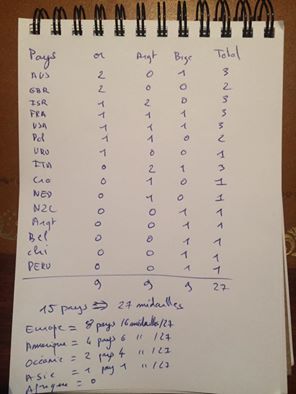 Pays or Argt Brze Total
AUS 2 0 1 3
GBR 2 0 0 2
ISR 1 2 0 3
FRA 1 1 1 3
USA 1 1 1 3
Pol 1 1 0 2
URU 1 0 0 1
ITA 0 2 1 3
Cro 0 1 0 1
NED 0 1 0 1
NZL 0 0 1 1
Argt 0 0 1 1
Bel 0 0 1 1
chi 0 0 1 1
PERU 0 0 1 1
9 9 9 27
15 pays => 27 médailles
Europe = 8 pays 16 médailles/27
Amérique = 4 pays 6 " /27
Océanie = 2 pays 4 " /27
Asie = 1 pays 1 " /27
Afrique = 0